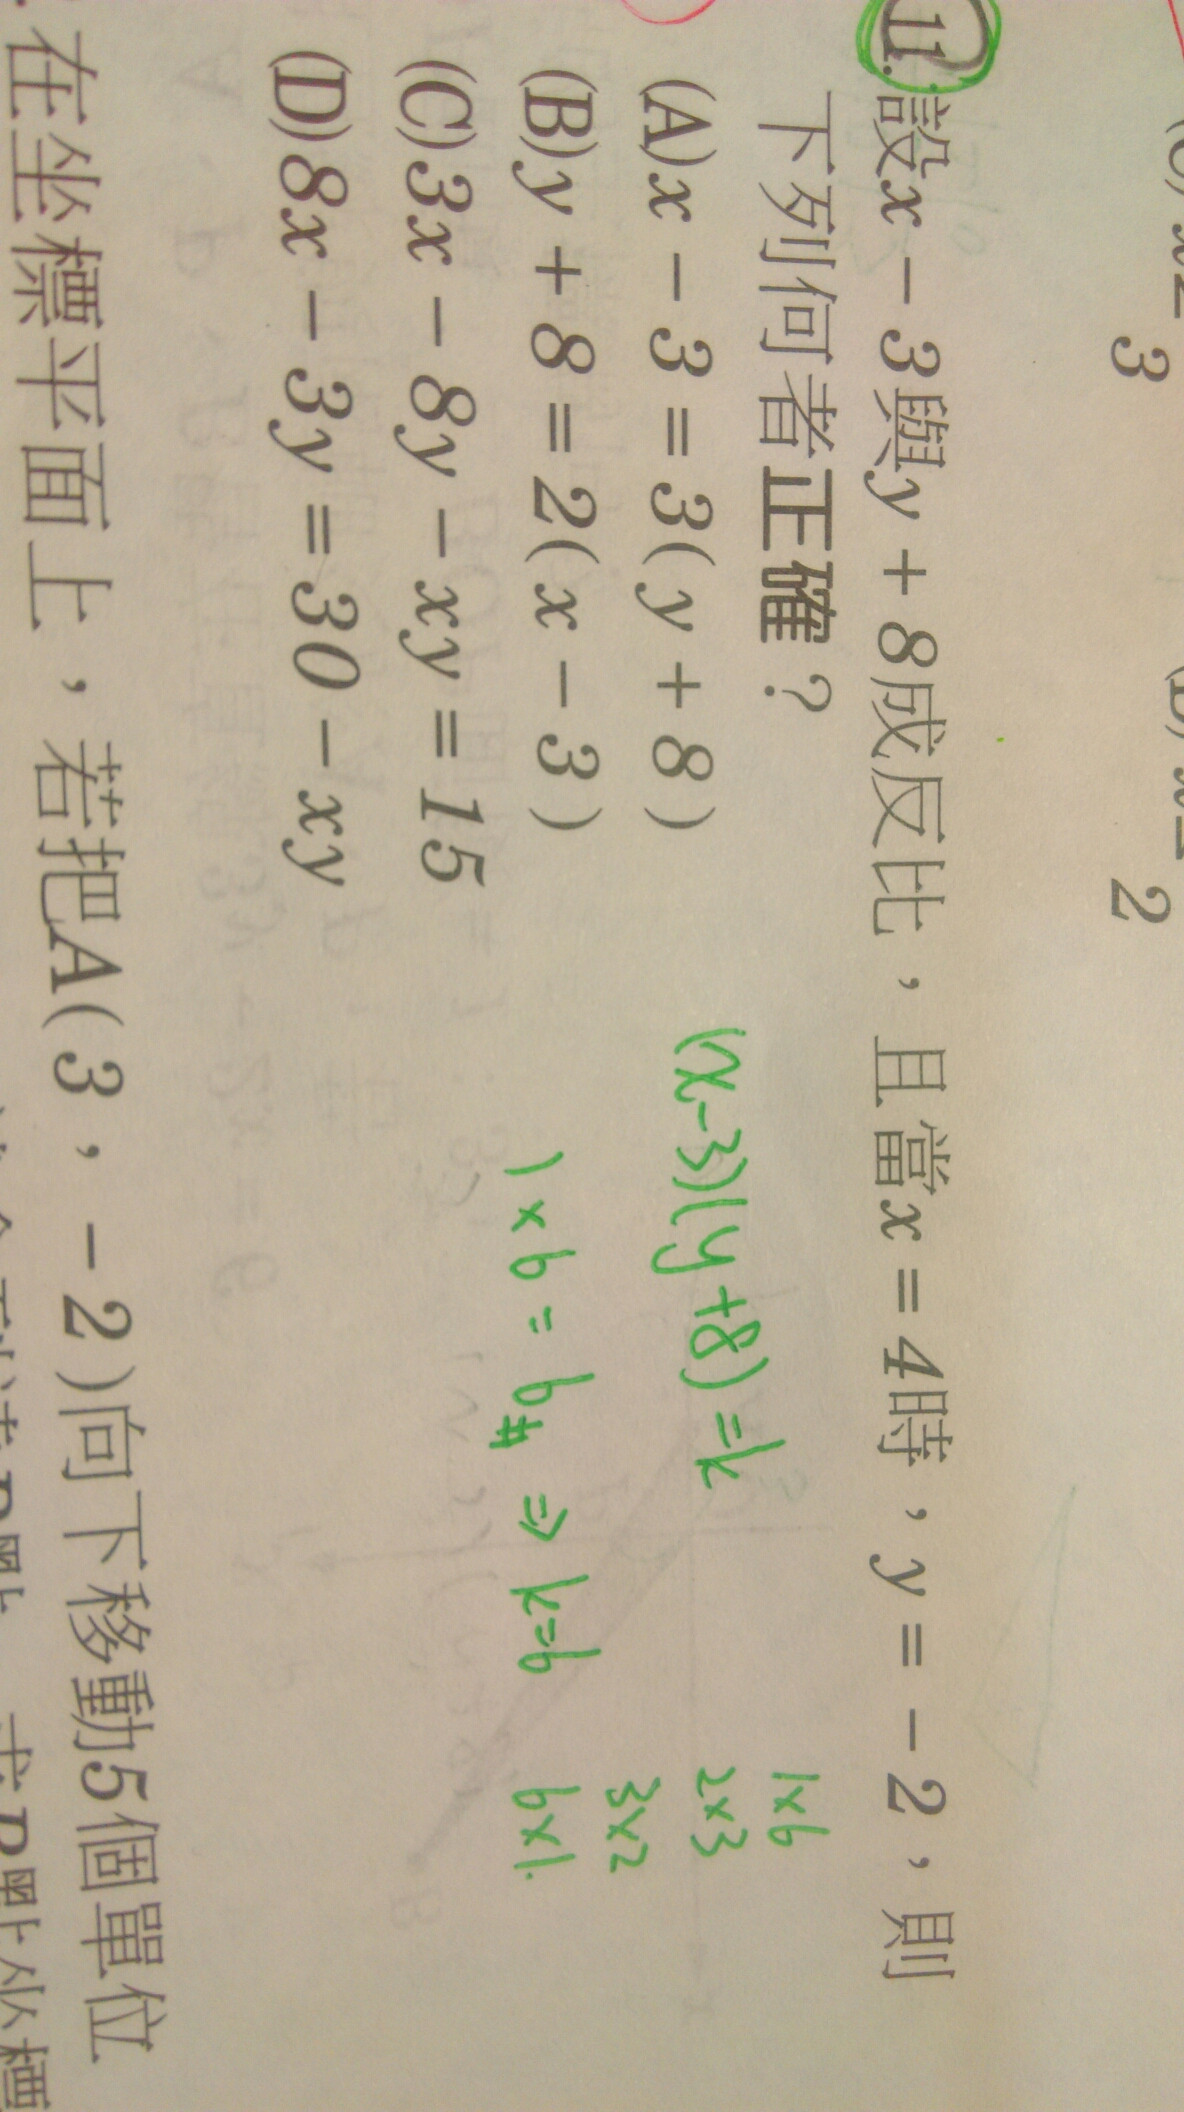 3
2
11.設x－3與y＋8成反比，且當x＝4時，y＝－2，則
下列何者正確？
(A)x－3＝3(y＋8)
(B)y＋8＝2(x－3)
(C)3x－8y－xy＝15
(D)8x－3y＝30－xy
(x-3)(y+8)=k
1×6=6# ⇒ k=6
1×6
2×3
3×2
6×1.
在坐標平面上，若把A(3，－2)向下移動5個單位